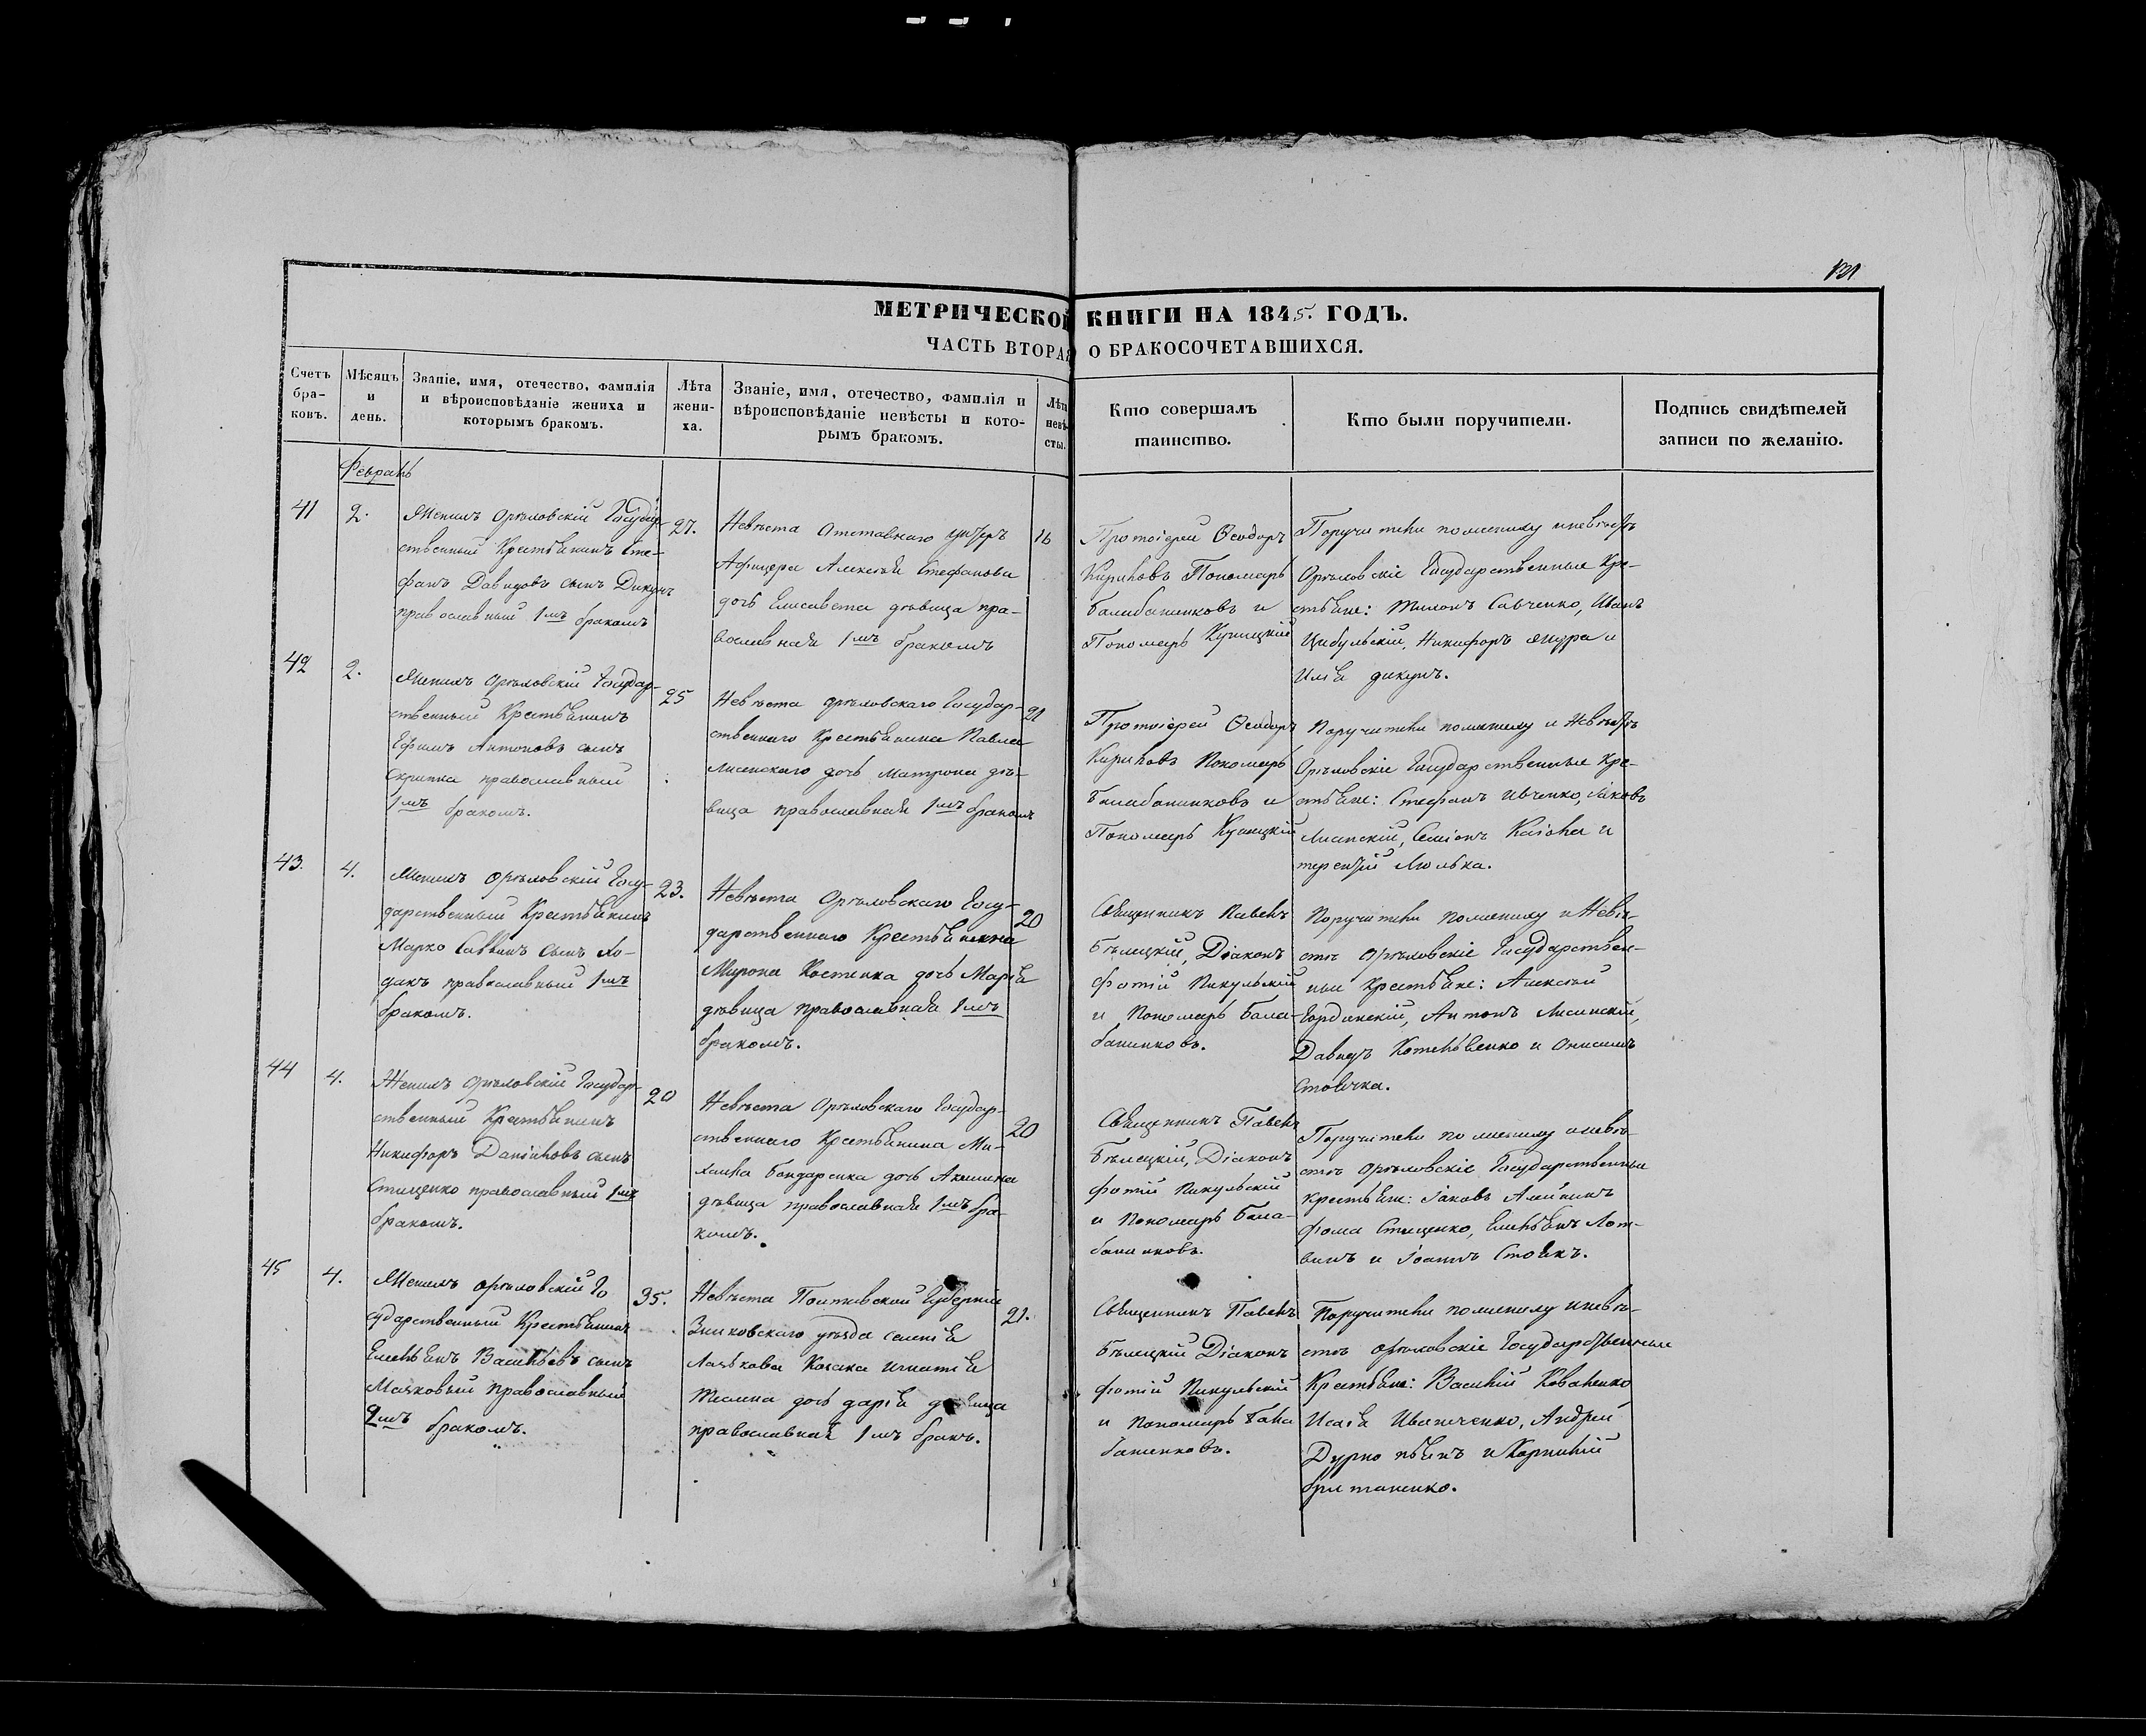 131
МЕТРИЧЕСКОЙ КНИГИ НА 1845. ГОДЪ.
ЧАСТЬ ВТОРАЯ О БРАКОСОЧЕТАВШИХСЯ.
Счетъ бра-ковъ.
Мѣсяцъ и день.
Званіе, имя, отечество, фамилія и вѣроисповѣданіе жениха и которымъ бракомъ.
Лѣта жени-ха.
Званіе, имя, отечество, фамилія и вѣроисповѣданіе невѣсты и кото-рымъ бракомъ.
Лѣта невѣ-сты.
Кто совершалъ таинство.
Кто были поручители.
Подпись свидѣтелей записи по желанію.
Февраль
41
2.
Женихъ Орѣловскій Государ-
ственный Крестьянинъ Сте-
фанъ Давидовъ сынъ Дикунъ
православный 1мъ бракомъ
27.
Невѣста Отставнаго унтеръ
Афицера Алексѣя Стефанова
дочь Елисавета дѣвица пра-
вославная 1мъ бракомъ
16
Протоіерей Ѳеодоръ
Кириловъ Пономарь
Балабаненковъ и
Пономарь Куницкій
Поручители по жениху и невѣстѣ
Орѣловскіе Государственные Кре-
стьяне: Тихонъ Савченко, Иванъ
Цибульскій, Никифоръ Жура и
Илья дикунъ.
42
2.
Женихъ Орѣловскій Государ-
ственный Крестьянинъ
Ефимъ Антоновъ сынъ
Скрипка православный
1мъ бракомъ.
25
Невѣста орѣловскаго Государ-
ственнаго Крестьянина Павла
Лисенскаго дочь Матрона дѣ-
вица православная 1мъ бракомъ
21
Протоіерей Ѳеодоръ
Кириловъ Пономарь
Балабаненковъ и
Пономарь Куницкій
Поручители по жениху и Невѣстѣ
Орѣловскіе Государственные Кре-
стьяне: Стефанъ Ивченко, Іаковъ
Лисенскій, Семіонъ и
терентій Люлька.
43.
4.
Женихъ Орѣловскій Госу-
дарственный Крестьянинъ
Марко Саввинъ сынъ Хо-
дакъ православный 1мъ
бракомъ.
23.
Невѣста Орѣловскаго Госу-
дарственнаго Крестьянина
Мирона Костенка дочь Марія
дѣвица православная 1мъ
бракомъ.
20
Священникъ Павелъ
Бѣлецкій, Діаконъ
фотій Пикульскій
и Пономарь Бала-
баненковъ.
Поручители по жениху и Невѣ-
стѣ Орѣловскіе Государствен-
ные крестьяне: Алексѣй
Гординскій, Антонъ Лисинскій,
Давидъ и Онисимъ
44
4.
Женихъ Орѣловскій Государ-
ственный Крестьянинъ
Никифоръ Даніиловъ сынъ
Стищенко православный 1мъ
бракомъ.
20
Невѣста Орѣловскаго Государ-
ственнаго Крестьянина Ми-
хаила Бондаренка дочь Акилина
дѣвица православная 1мъ бра-
комъ.
20
Священникъ Павелъ
Бѣлецкій, Діаконъ
фотій Пикульскій
и Пономарь Бала-
баненковъ.
Поручители по жениху и невѣ-
стѣ Орѣловскіе Государственные
крестьяне: Іаковъ Алейникъ
фома Стищенко, Емельянъ Лот-
винъ и Іоаннъ Стоянъ.
45
4.
Женихъ орѣловскій Го
сударственный Крестьянинъ
Емельянъ Васильевъ сынъ
Маяковый православный
2мъ бракомъ.
35.
Невѣста Полтавской Губерніи
Зиньковскаго уѣзда селенія
Лазькова Козака игнатія
Теслена дочь дарія дѣвица
православная 1мъ бракъ.
21.
Священникъ Павелъ
Бѣлецкій Діаконъ
фотій Пикульскій
и Пономарь Бала
баненковъ.
Поручители по жениху и невѣ-
стѣ Орѣловскіе Государственные
Крестьяне: Василій Коваленко
Исаія Иванченко, Андрей
и Корнилій